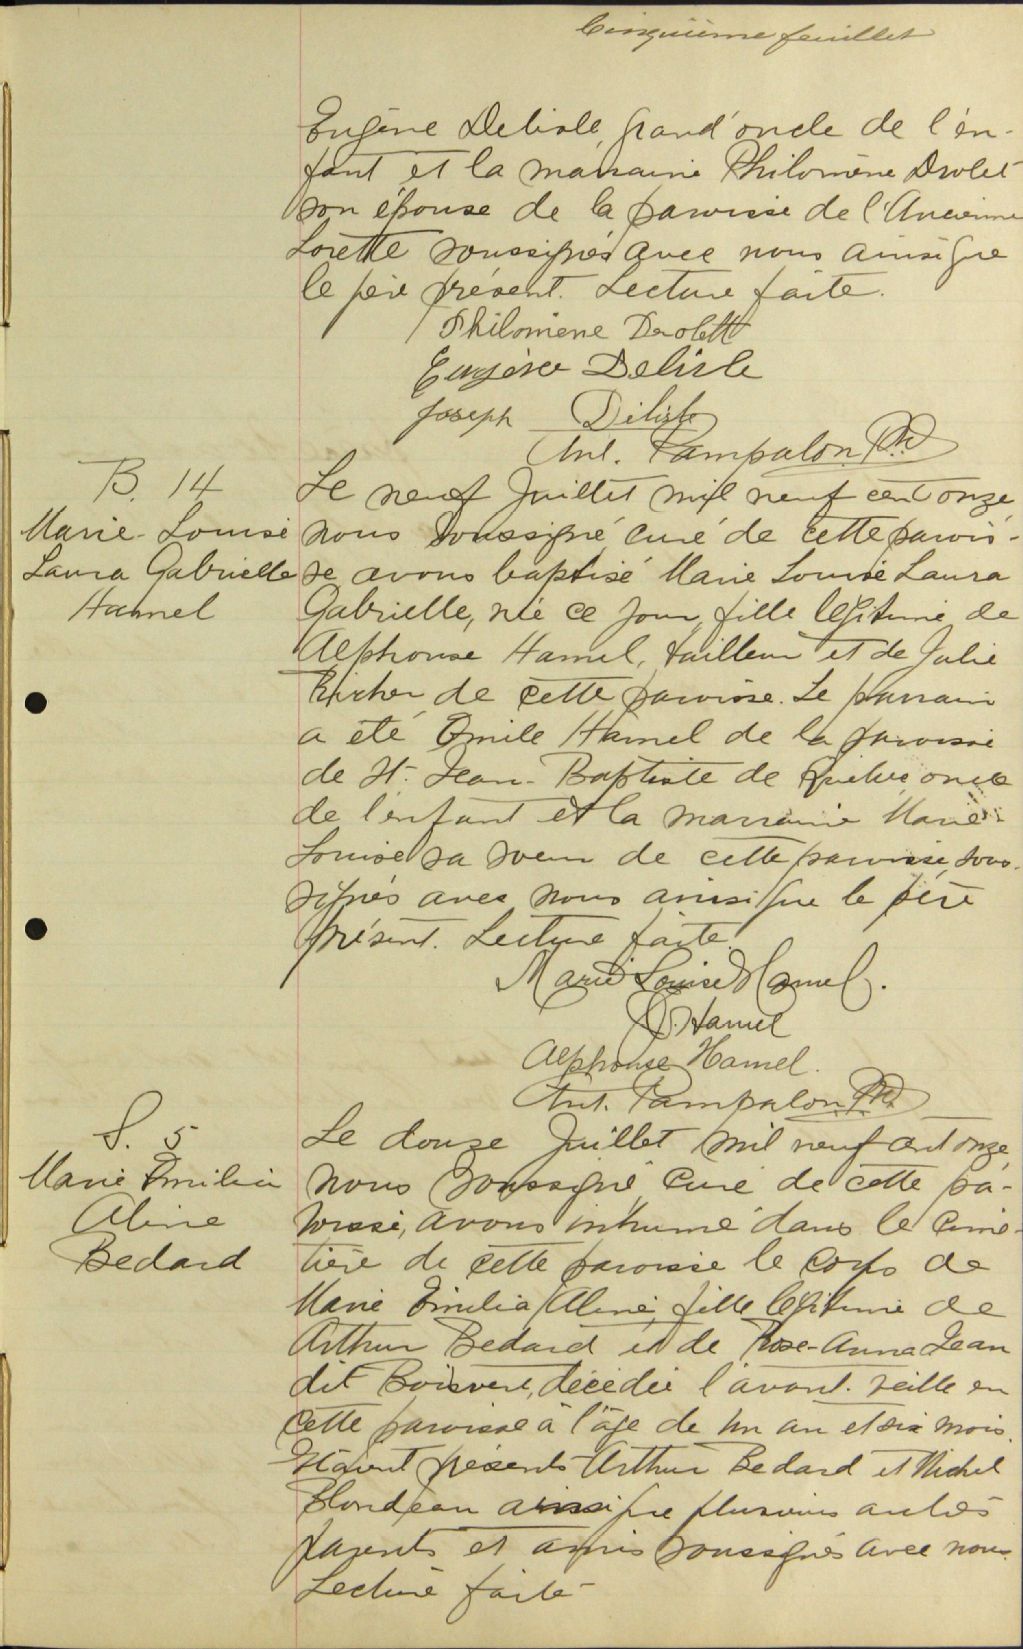 Cinquième feuillet
Eugène Delisle, grand'oncle de l'en-
fant et la marraine Philomène Drolet
son épouse de la paroisse de l'Ancienne
Lorette soussignés avec nous ainsi que
le père présent. Lecture faite.
Philomène Drolett
Eugène Delisle
Joseph Delisle
Ant. Pampalon Ptr
B. 14
Marie-Louise
Laura Gabrielle
Hamel
Le neuf Juillet mil neuf cent onze,
nous soussigné, curé de cette parois-
se avons baptisé Marie Louise Laura
Gabrielle, née ce jour, fille légitime de
Alphonse Hamel, tailleur et de Julie
de cette paroisse. Le parrain
a été Emile Hamel de la paroisse
de St-Jean-Baptiste de Québec oncle
de l'enfant et la marraine Marie-
Louise sa soeur de cette paroisse, sous-
signés avec nous ainsi que le père
présent. Lecture faite.
Marie Louise Hamel.
Hamel
Alphonse Hamel.
Ant. Pampalon Ptr.
S. 5
Marie Emilia
Aline
Bedard
Le douze Juillet mil neuf cent onze,
nous soussigné, curé de cette pa-
roisse, avons inhumé dans le cime-
tière de cette paroisse le corps de
Marie Emilia Aline, fille légitime de
Arthur Bedard et de Rose-Anna Jean
dit Boisvert, décédée l'avant-veille en
cette paroisse à l'âge de un an et six mois.
Etaient présents Arthur Bedard et Michel
Blondeau ainsi que plusieurs autres
parents et amis soussignés avec nous.
Lecture faite-